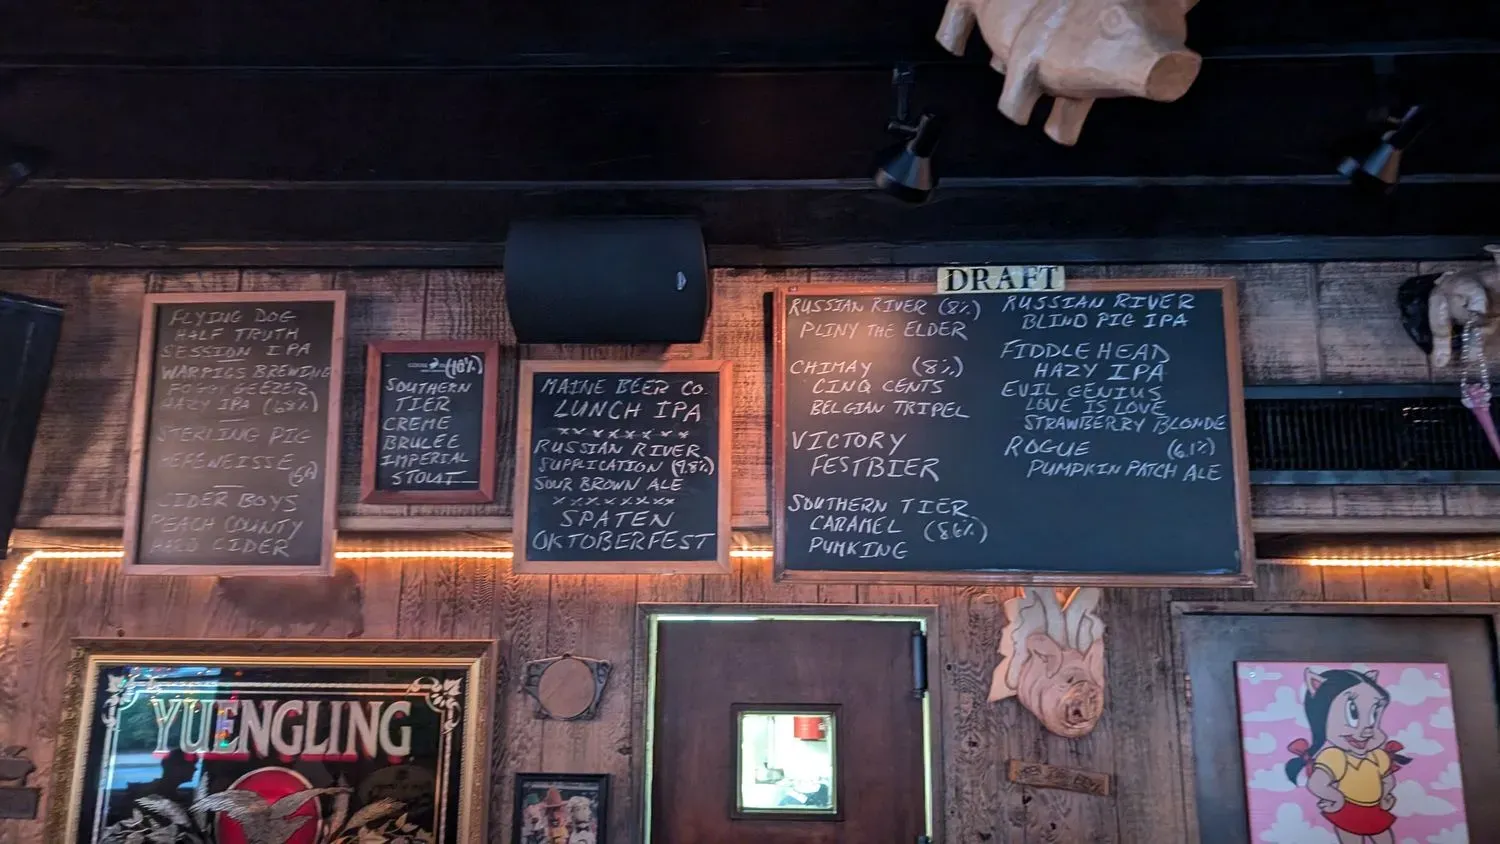 FLYING DOG
HALF TRUTH
SESSION IPA
WARPIGS BREWING
FOGGY GEEZER
HAZY IPA (6.8%)
STERLING PIG
HEFEWEISSE
CIDER BOYS
PEACH COUNTY
HARD CIDER
(10%)
SOUTHERN
TIER
CREME
BRULEE
IMPERIAL
STOUT
MAINE BEER CO.
LUNCH IPA
x x x x x x x
RUSSIAN RIVER
SUPPLICATION (9.8%)
SOUR BROWN ALE
x x x x x x x x
SPATEN
OKTOBERFEST
DRAFT
RUSSIAN RIVER (8%)
PLINY THE ELDER
CHIMAY (8%)
CINQ CENTS
BELGIAN TRIPEL
VICTORY
FESTBIER
SOUTHERN TIER
CARAMEL (8.6%)
PUMKING
RUSSIAN RIVER
BLIND PIG IPA
FIDDLEHEAD
HAZY IPA
EVIL GENIUS
LOVE IS LOVE
STRAWBERRY BLONDE
ROGUE (6.1%)
PUMPKIN PATCH ALE
YUENGLING